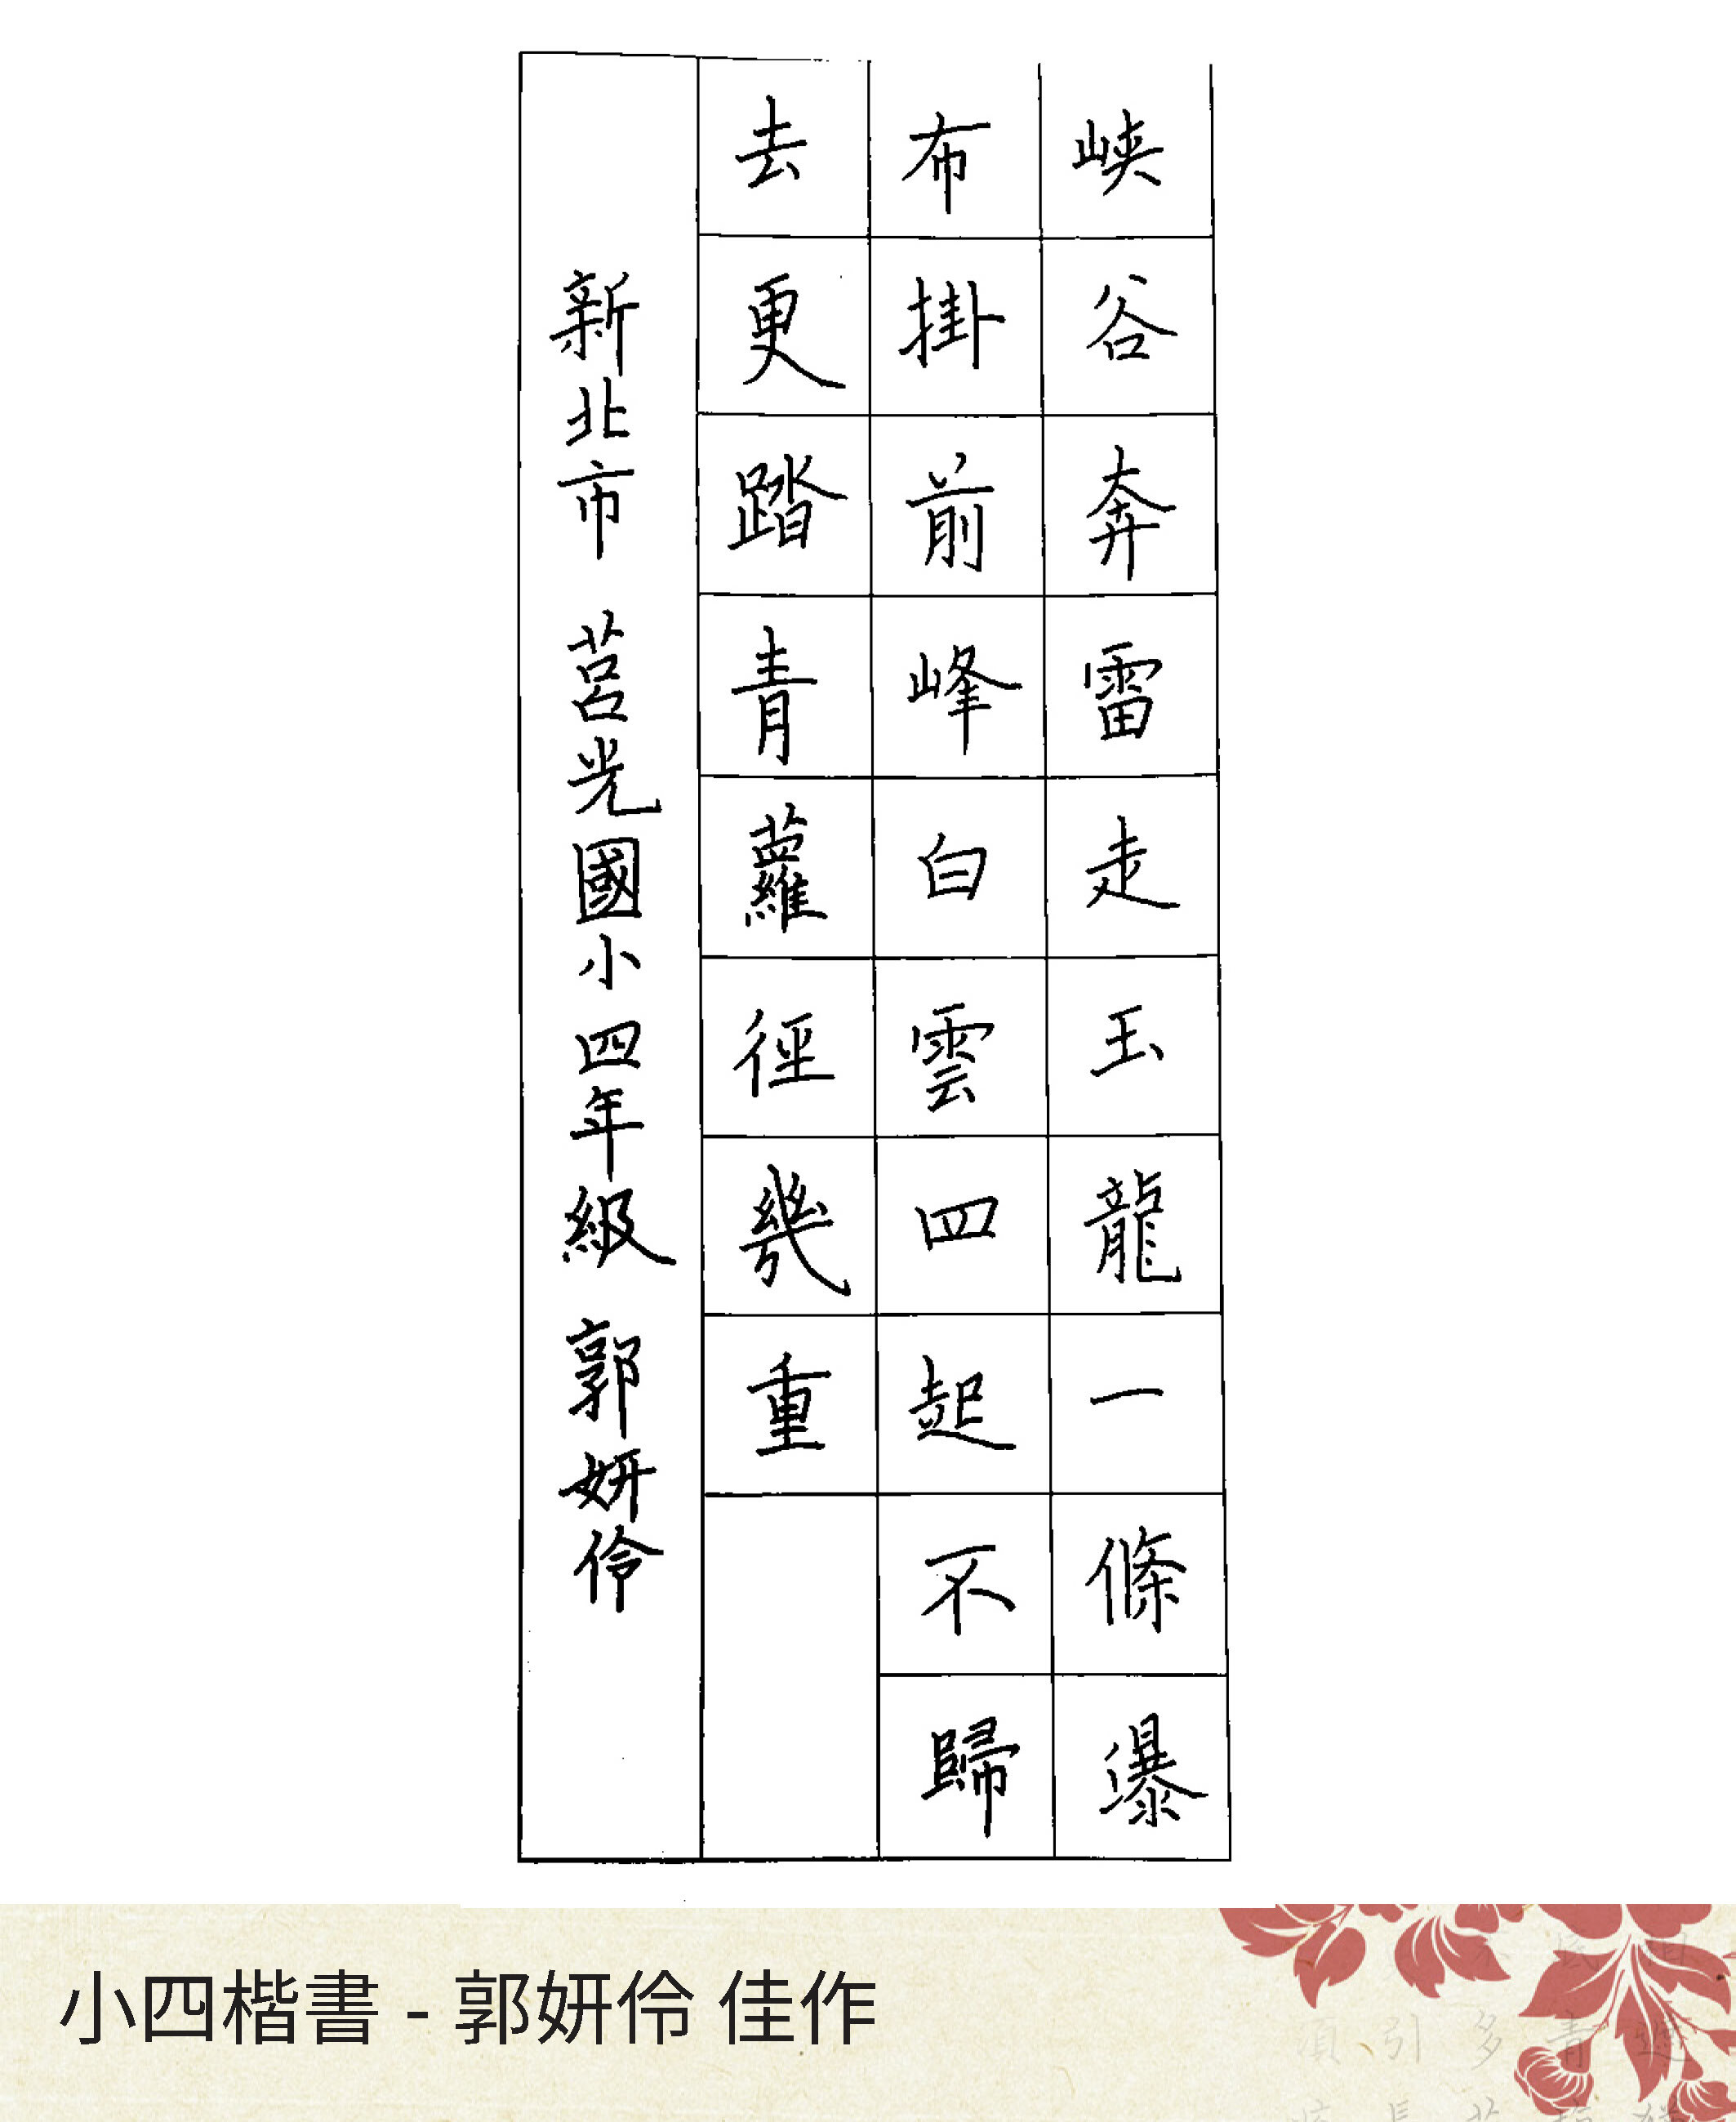 峽谷奔雷走玉龍一條瀑
布掛前峰白雲四起不歸
去更踏青蘿徑幾重
新北市 莒光國小四年級 郭妍伶
小四楷書 - 郭妍伶 佳作